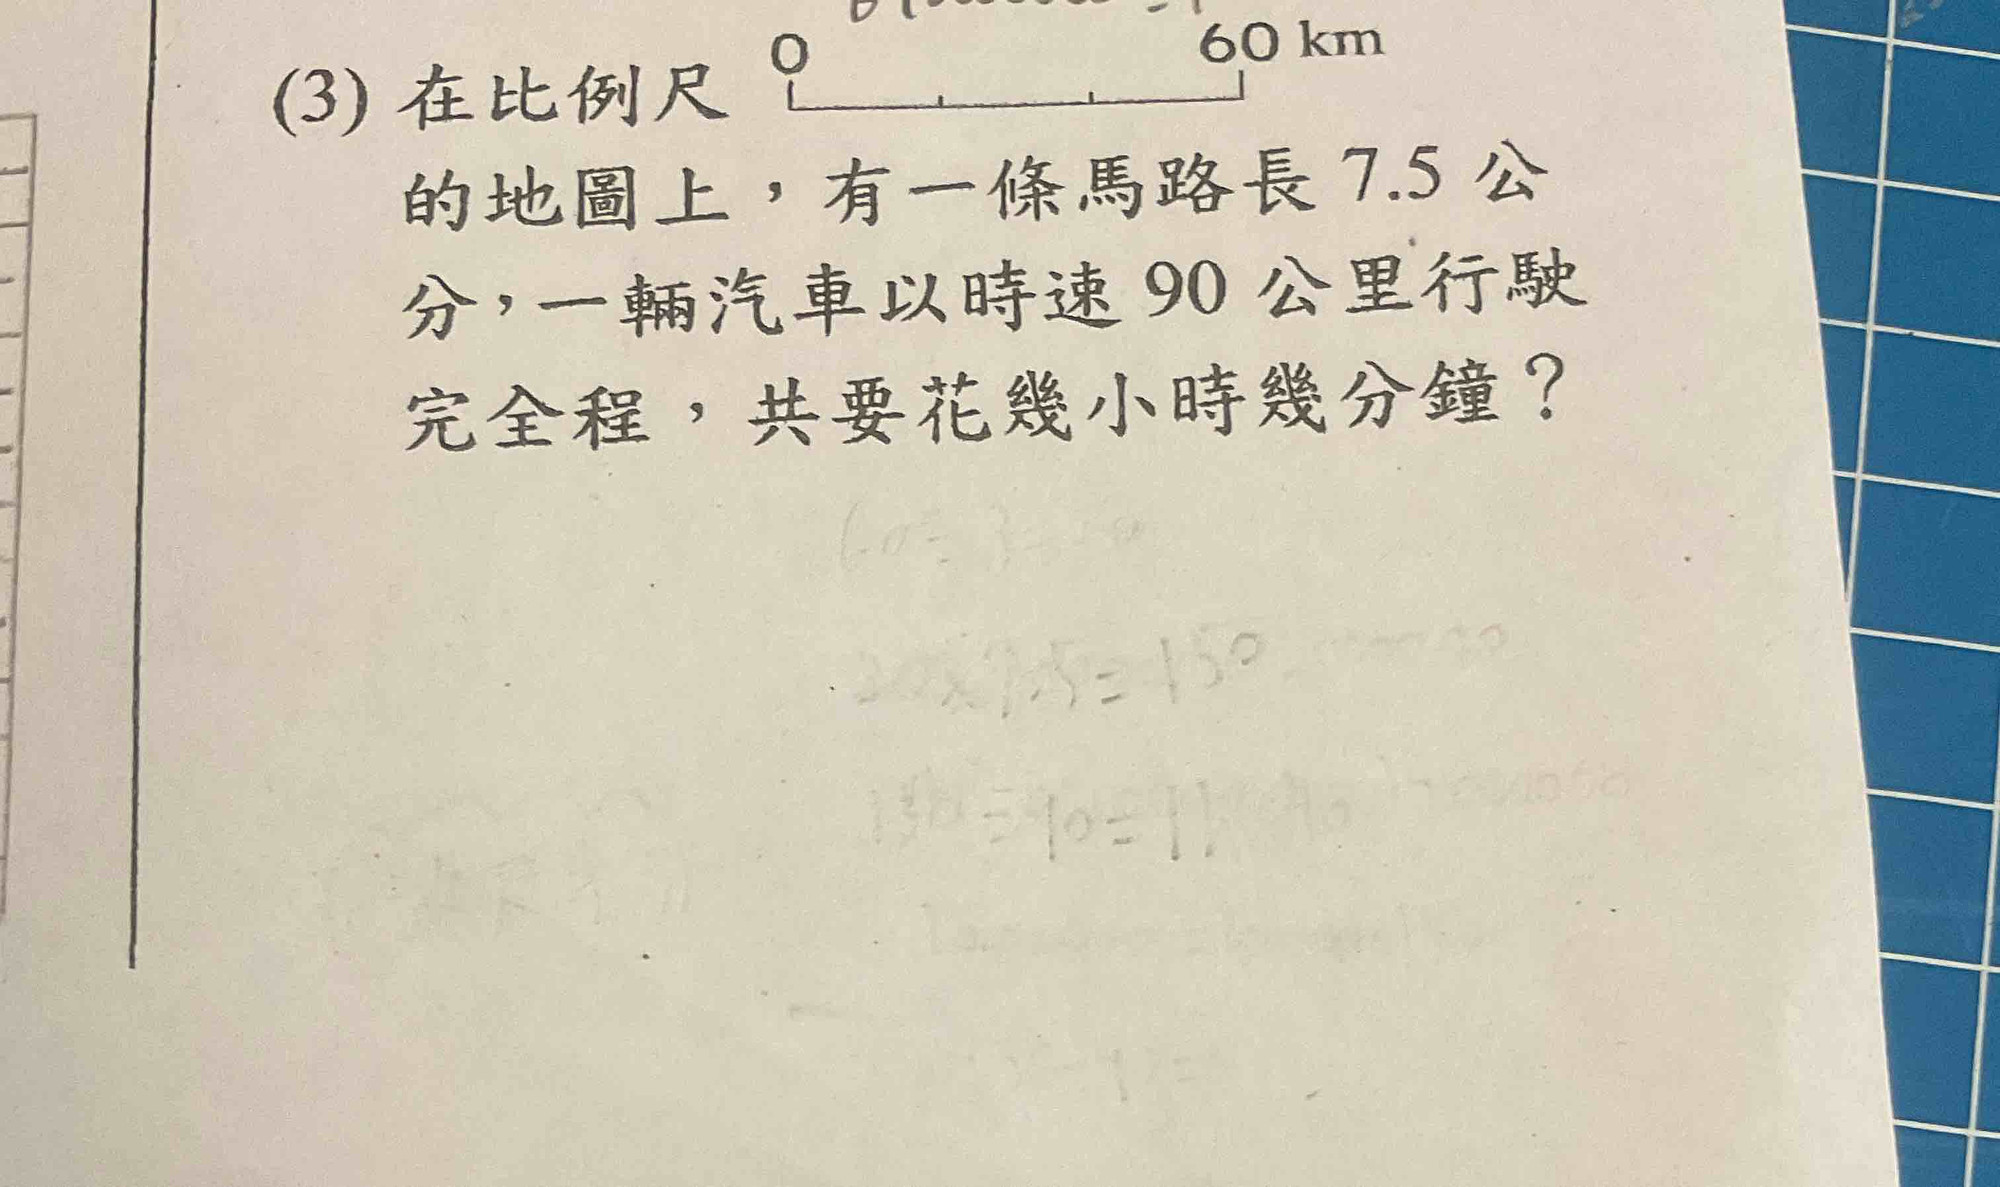 0 60 km
(3) 在比例尺
的地圖上，有一條馬路長 7.5 公
分，一輛汽車以時速 90 公里行駛
完全程，共要花幾小時幾分鐘？